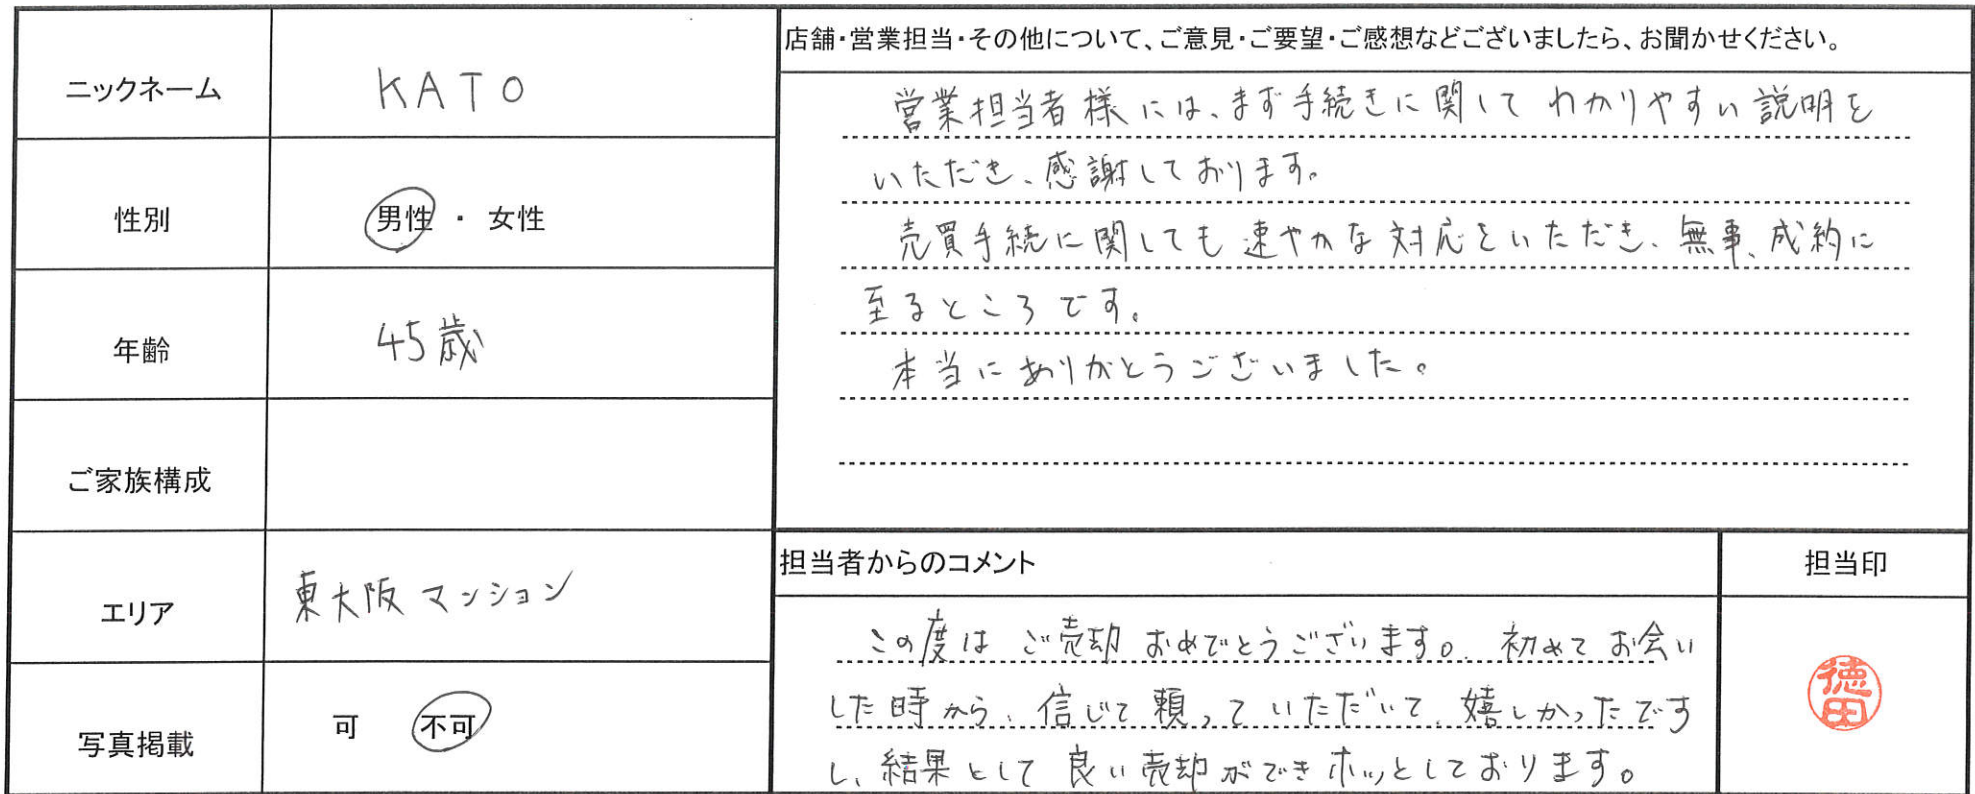 ニックネーム
KATO
性別
男性 ・ 女性
年齢
45歳
ご家族構成
エリア
東大阪 マンション
写真掲載
可 不可
店舗・営業担当・その他について、ご意見・ご要望・ご感想などございましたら、お聞かせください。
営業担当者様には、まず手続きに関して わかりやすい説明を
いただき、感謝しております。
売買手続に関しても速やかな対応をいただき、無事、成約に
至るところです。
本当にありがとうございました。
担当者からのコメント
この度は ご売却 おめでとうございます。初めてお会い
した時から、信じて頼っていただいて、嬉しかったです
し、結果として良い売却ができホッとしております。
担当印
徳田